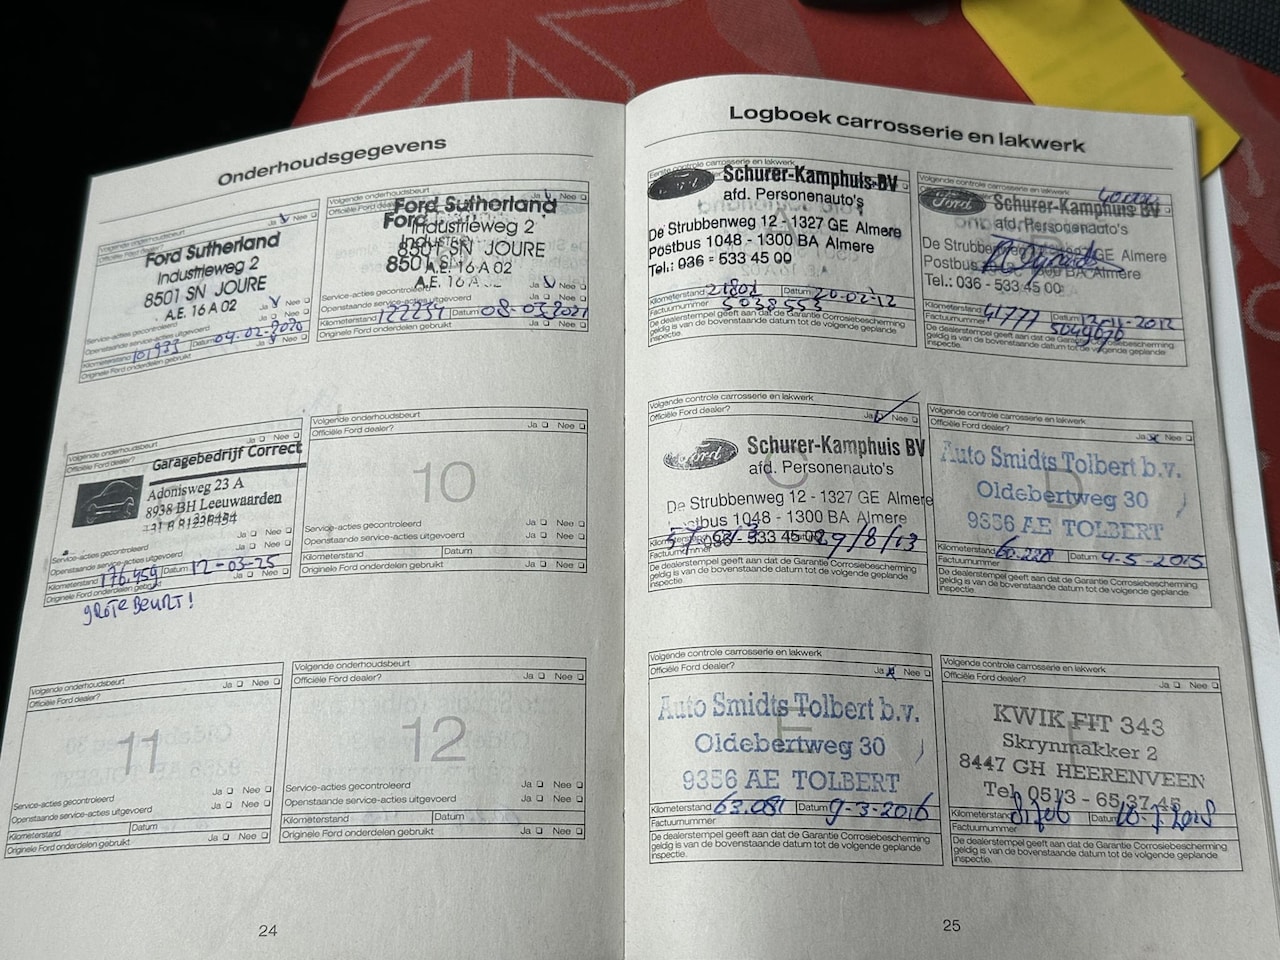 Onderhoudsgegevens
Volgende onderhoudsbeurt
Ja Nee
Ford Sutherland
Industrieweg 2
8501 SN JOURE
A.E. 16 A 02
Service-acties gecontroleerd
Ja Nee
Openstaande service-acties uitgevoerd
Kilometerstand 101933 Datum 04-02-2020
Originele Ford onderdelen gebruikt
Volgende onderhoudsbeurt
Officiële Ford dealer? Ja Nee
Ford Sutherland
Industrieweg 2
8501 SN JOURE
A.E. 16 A 02
A.E. 16 A
Service-acties gecontroleerd
Openstaande service-acties uitgevoerd
Kilometerstand 122231 Datum 08-03-2021
Originele Ford onderdelen gebruikt Ja Nee
Volgende onderhoudsbeurt
Officiële Ford dealer?
Garagebedrijf Correct
Adonisweg 23 A
8938 BH Leeuwaarden
Service-acties gecontroleerd Ja Nee
Openstaande service-acties uitgevoerd Ja Nee
Kilometerstand 176.459 Datum 12-03-25
Originele Ford onderdelen gebruikt Ja Nee
GROTE BEURT!
Volgende onderhoudsbeurt
Officiële Ford dealer? Ja Nee
10
Service-acties gecontroleerd Ja Nee
Openstaande service-acties uitgevoerd Ja Nee
Kilometerstand Datum
Originele Ford onderdelen gebruikt Ja Nee
Volgende onderhoudsbeurt
Officiële Ford dealer? Ja Nee
11
Service-acties gecontroleerd Ja Nee
Openstaande service-acties uitgevoerd Ja Nee
Kilometerstand Datum
Originele Ford onderdelen gebruikt Ja Nee
Volgende onderhoudsbeurt
Officiële Ford dealer? Ja Nee
12
Service-acties gecontroleerd Ja Nee
Openstaande service-acties uitgevoerd Ja Nee
Kilometerstand Datum
Originele Ford onderdelen gebruikt Ja Nee
24
Logboek carrosserie en lakwerk
Eerste controle carrosserie en lakwerk
Ford
Schurer-Kamphuis BV
afd. Personenauto's
De Strubbenweg 12 - 1327 GE Almere
Postbus 1048 - 1300 BA Almere
Tel.: 036 - 533 45 00
Kilometerstand 21801 Datum 20-02-12
Factuurnummer 5038553
De dealerstempel geeft aan dat de Garantie Corrosiebescherming
geldig is van bovenstaande datum tot de volgende geplande
inspectie.
Volgende controle carrosserie en lakwerk
Ford
Schurer-Kamphuis BV
afd. Personenauto's
De Strubbenweg 12 - 1327 GE Almere
Postbus 1048 - 1300 BA Almere
Tel.: 036 - 533 45 00
Kilometerstand 41777 Datum 12-11-2012
Factuurnummer 5049070
De dealerstempel geeft aan dat de Garantie Corrosiebescherming
geldig is van bovenstaande datum tot de volgende geplande
inspectie.
Volgende controle carrosserie en lakwerk
Officiële Ford dealer? Ja Nee
C
Ford
Schurer-Kamphuis BV
afd. Personenauto's
De Strubbenweg 12 - 1327 GE Almere
Postbus 1048 - 1300 BA Almere
533 45 00
29/8/13
Factuurnummer
De dealerstempel geeft aan dat de Garantie Corrosiebescherming
geldig is van bovenstaande datum tot de volgende geplande
inspectie.
Volgende controle carrosserie en lakwerk
Officiële Ford dealer? Ja Nee
D
Auto Smidts Tolbert b.v.
Oldebertweg 30
9356 AE TOLBERT
Kilometerstand 60.228 Datum 4-5-2015
Factuurnummer
De dealerstempel geeft aan dat de Garantie Corrosiebescherming
geldig is van bovenstaande datum tot de volgende geplande
inspectie.
Volgende controle carrosserie en lakwerk
Officiële Ford dealer? Ja Nee
E
Auto Smidts Tolbert b.v.
Oldebertweg 30
9356 AE TOLBERT
Kilometerstand 63.081 Datum 9-3-2016
Factuurnummer
De dealerstempel geeft aan dat de Garantie Corrosiebescherming
geldig is van bovenstaande datum tot de volgende geplande
inspectie.
Volgende controle carrosserie en lakwerk
Officiële Ford dealer? Ja Nee
F
KWIK FIT 343
Skrynmakker 2
8447 GH HEERENVEEN
Tel. 0513 - 65 37 45
Kilometerstand Datum
Factuurnummer
De dealerstempel geeft aan dat de Garantie Corrosiebescherming
geldig is van bovenstaande datum tot de volgende geplande
inspectie.
25